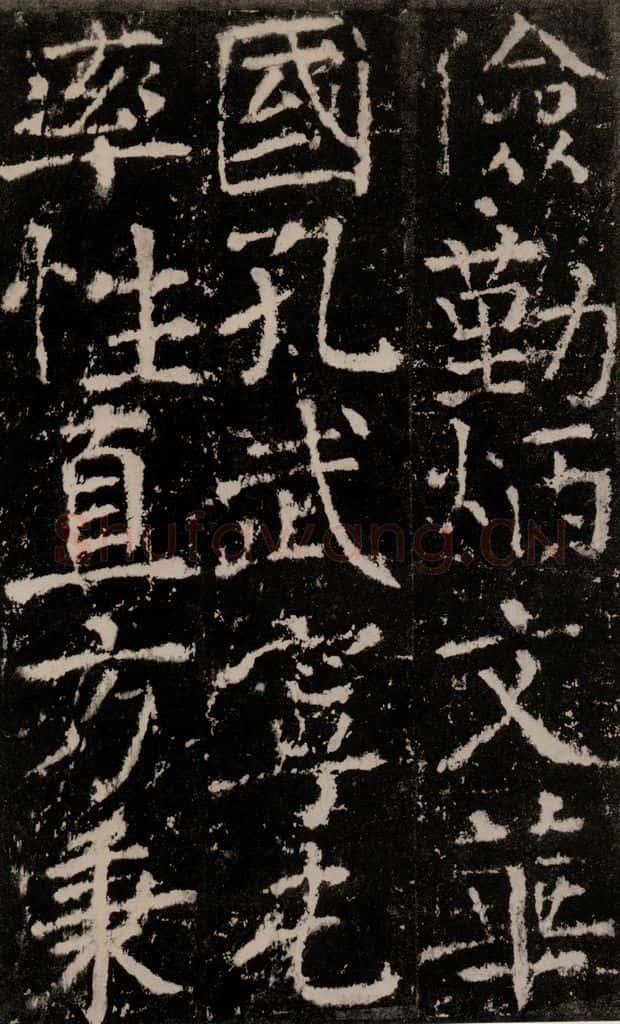 儉勤炳文華
國孔武寧屯
率性直方秉
Shufawang.CN